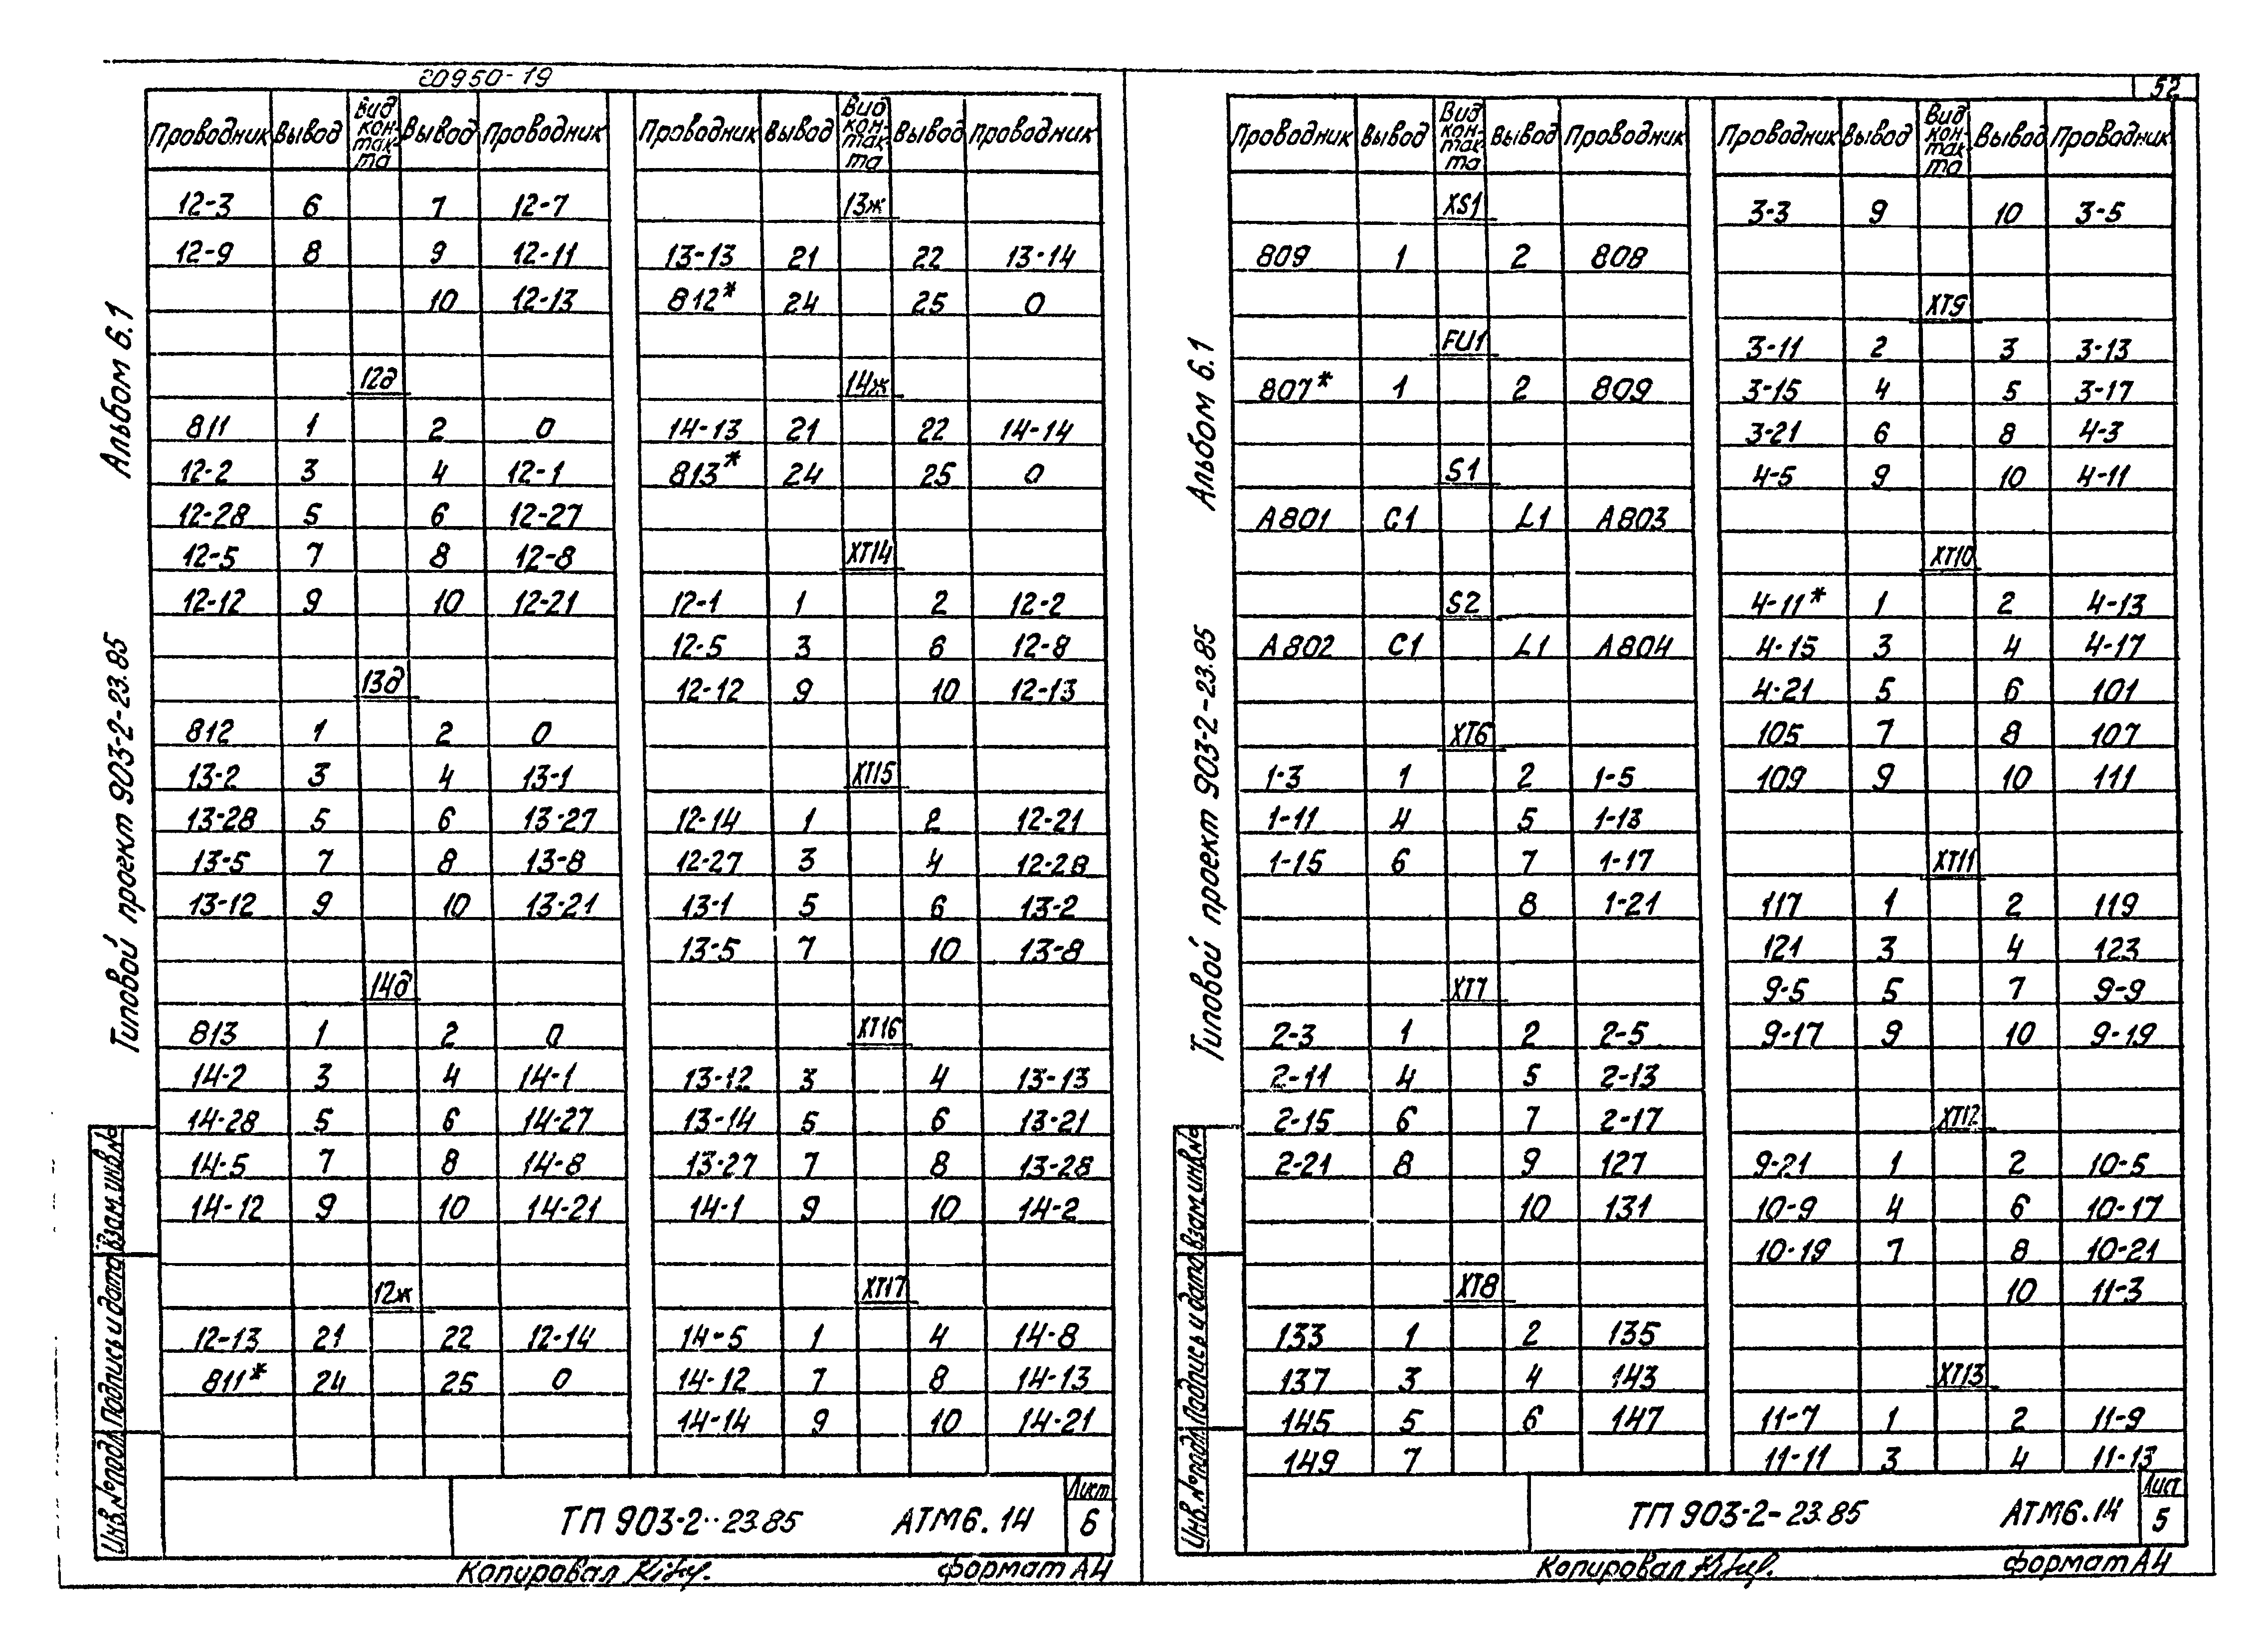 20950-19
52
Альбом 6.1
Типовой проект 903-2-23.85
Взам. инв. №
Подпись и дата
Инв. № подл.
Проводник Вывод Вид контакта Вывод Проводник
12-3 6 7 12-7
12-9 8 9 12-11
10 12-13
12д
811 1 2 0
12-2 3 4 12-1
12-28 5 6 12-27
12-5 7 8 12-8
12-12 9 10 12-21
13д
812 1 2 0
13-2 3 4 13-1
13-28 5 6 13-27
13-5 7 8 13-8
13-12 9 10 13-21
14д
813 1 2 0
14-2 3 4 14-1
14-28 5 6 14-27
14-5 7 8 14-8
14-12 9 10 14-21
12ж
12-13 21 22 12-14
811* 24 25 0
Проводник Вывод Вид контакта Вывод Проводник
13ж
13-13 21 22 13-14
812* 24 25 0
14ж
14-13 21 22 14-14
813* 24 25 0
XT14
12-1 1 2 12-2
12-5 3 6 12-8
12-12 9 10 12-13
XT15
12-14 1 2 12-21
12-27 3 4 12-28
13-1 5 6 13-2
13-5 7 10 13-8
XT16
13-12 3 4 13-13
13-14 5 6 13-21
13-27 7 8 13-28
14-1 9 10 14-2
XT17
14-5 1 4 14-8
14-12 7 8 14-13
14-14 9 10 14-21
ТП 903-2-23.85 АТМ6.14
Лист
6
Копировал
формат А4
Альбом 6.1
Типовой проект 903-2-23.85
Взам. инв. №
Подпись и дата
Инв. № подл.
Проводник Вывод Вид контакта Вывод Проводник
XS1
809 1 2 808
FU1
807* 1 2 809
S1
А801 C1 L1 А803
S2
А802 C1 L1 А804
XT6
1-3 1 2 1-5
1-11 4 5 1-13
1-15 6 7 1-17
8 1-21
XT7
2-3 1 2 2-5
2-11 4 5 2-13
2-15 6 7 2-17
2-21 8 9 127
10 131
XT8
133 1 2 135
137 3 4 143
145 5 6 147
149 7
Проводник Вывод Вид контакта Вывод Проводник
3-3 9 10 3-5
XT9
3-11 2 3 3-13
3-15 4 5 3-17
3-21 6 8 4-3
4-5 9 10 4-11
XT10
4-11* 1 2 4-13
4-15 3 4 4-17
4-21 5 6 101
105 7 8 107
109 9 10 111
XT11
117 1 2 119
121 3 4 123
9-5 5 7 9-9
9-17 9 10 9-19
XT12
9-21 1 2 10-5
10-9 4 6 10-17
10-19 7 8 10-21
10 11-3
XT13
11-7 1 2 11-9
11-11 3 4 11-13
ТП 903-2-23.85 АТМ6.14
Лист
5
Копировал
формат А4